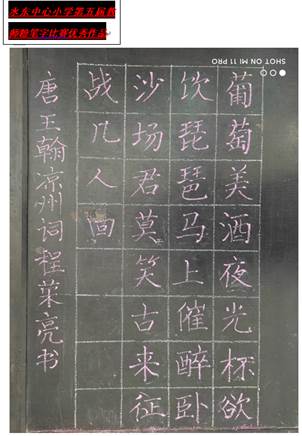 水东中心小学第五届教
师粉笔字比赛优秀作品
SHOT ON MI 11 PRO
葡萄美酒夜光杯欲
饮琵琶马上催醉卧
沙场君莫笑古来征
战几人回
唐王翰凉州词程荣亮书